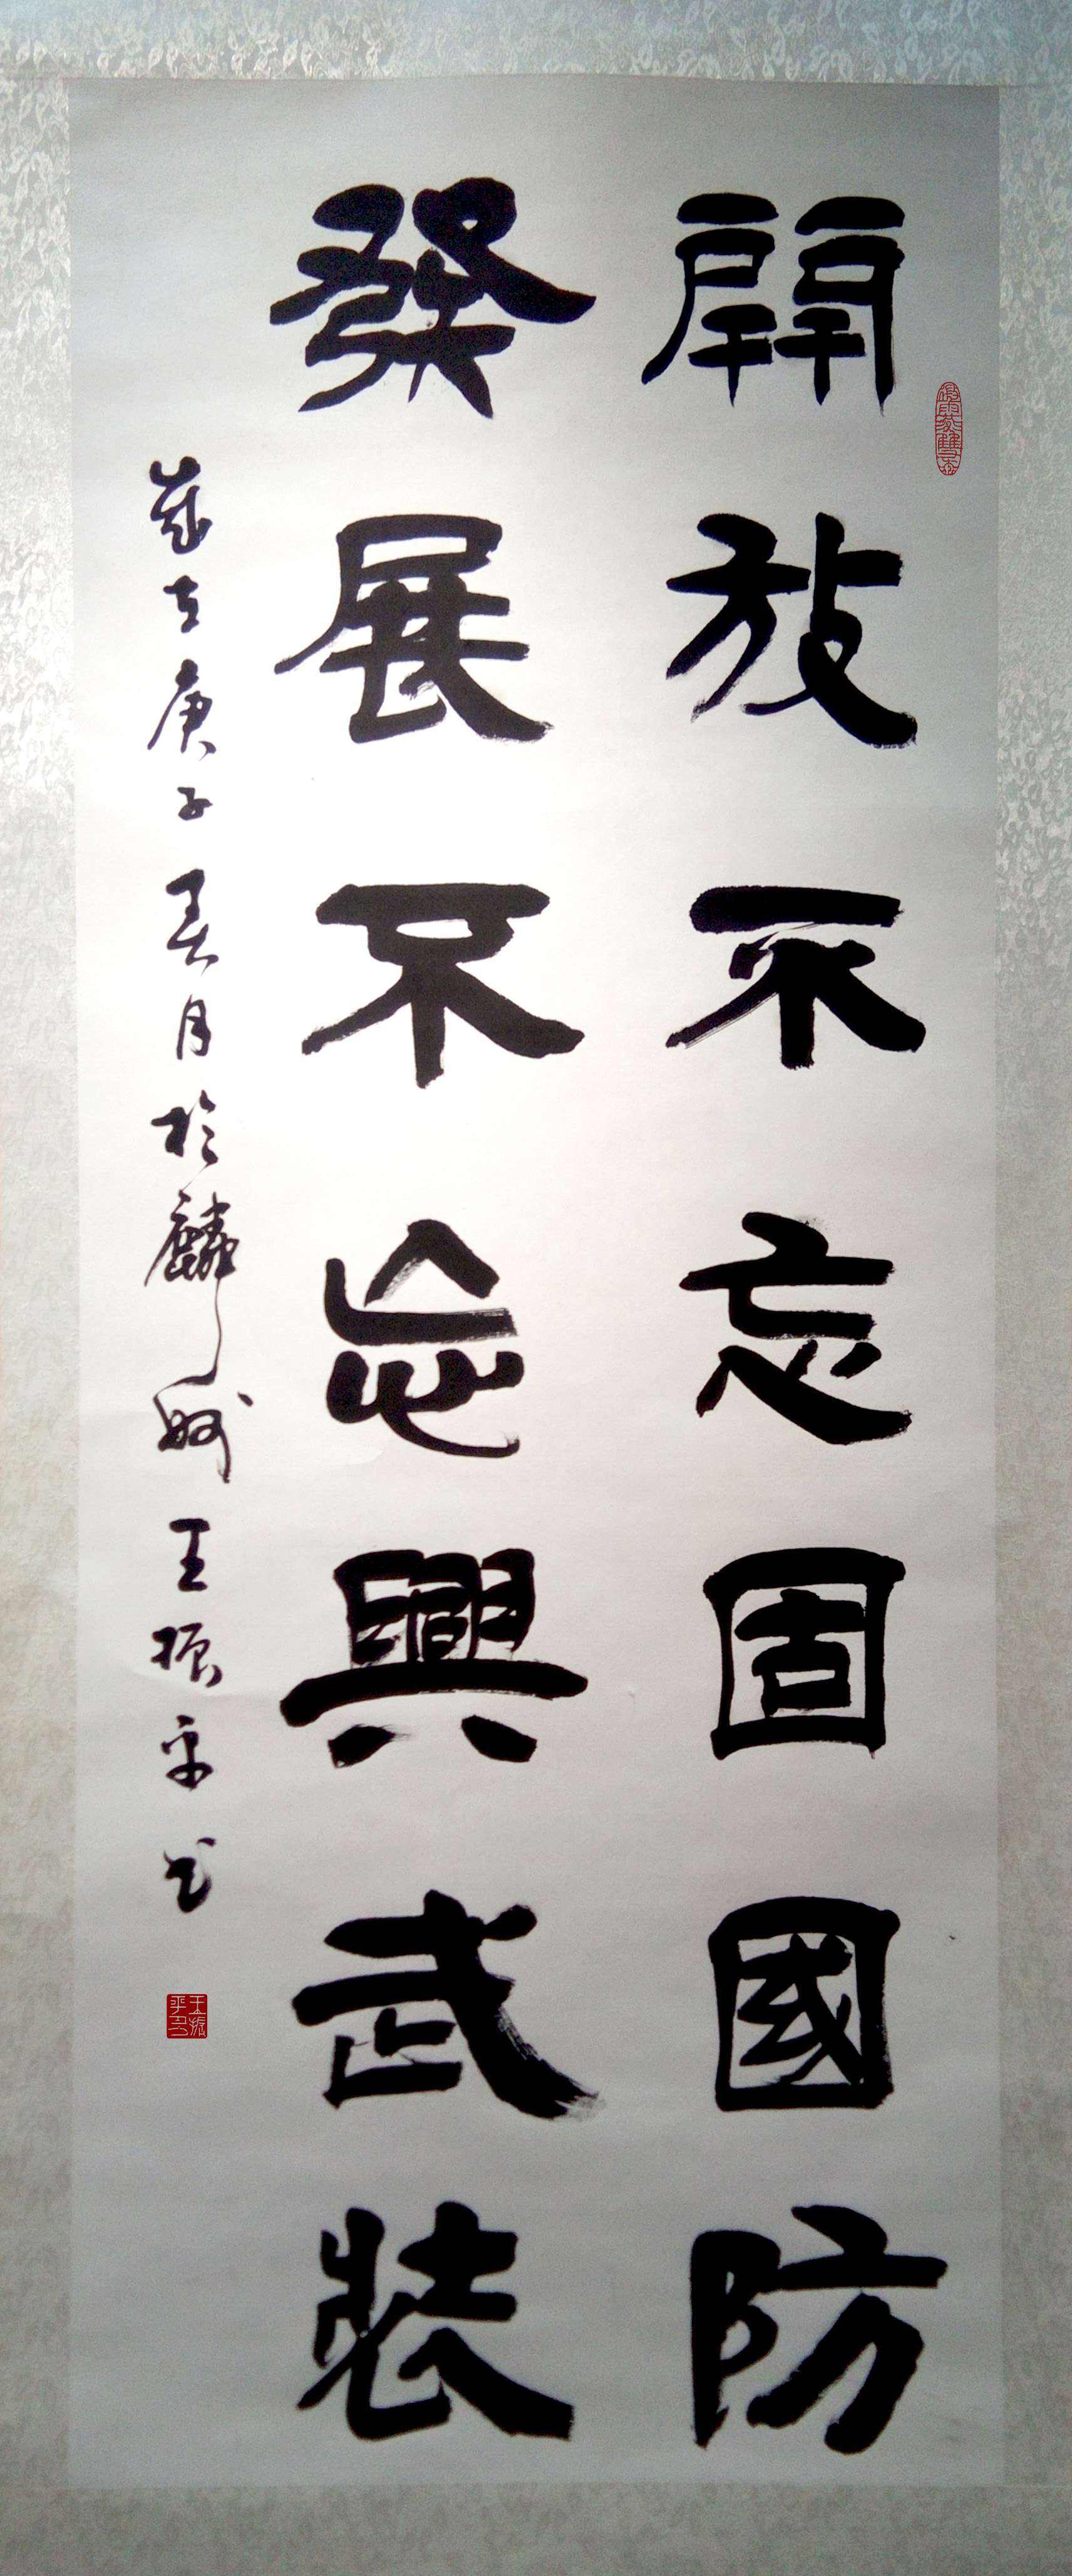 開放不忘固國防
發展不忘興武裝
歲在庚子春月於麟州王振平書
王振平印